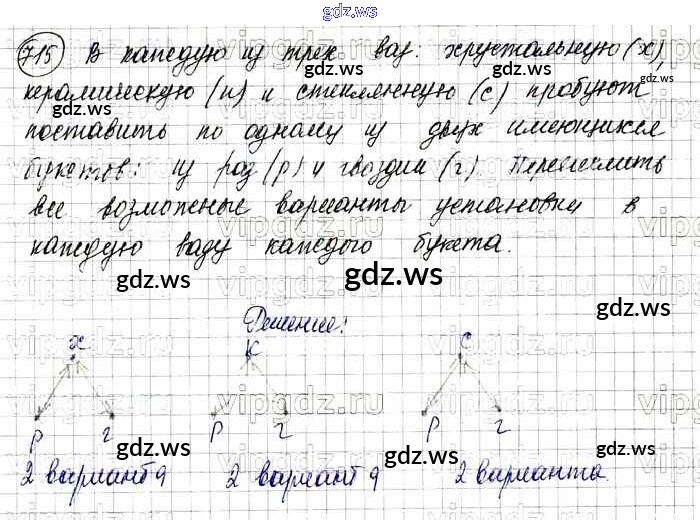 gdz.ws
715 В каждую из трех ваз: хрустальную (х),
керамическую (к) и стеклянную (с) пробуют
поставить по одному из двух имеющихся
букетов: из роз (р) и гвоздик (г). Перечислить
все возможные варианты установки в
каждую вазу каждого букета.
gdz.ws
gdz.ws
gdz.ws
Решение:
х К с
р г р г р г
2 варианта 2 варианта 2 варианта.
gdz.ws
gdz.ws
gdz.ws
vipgdz.ru